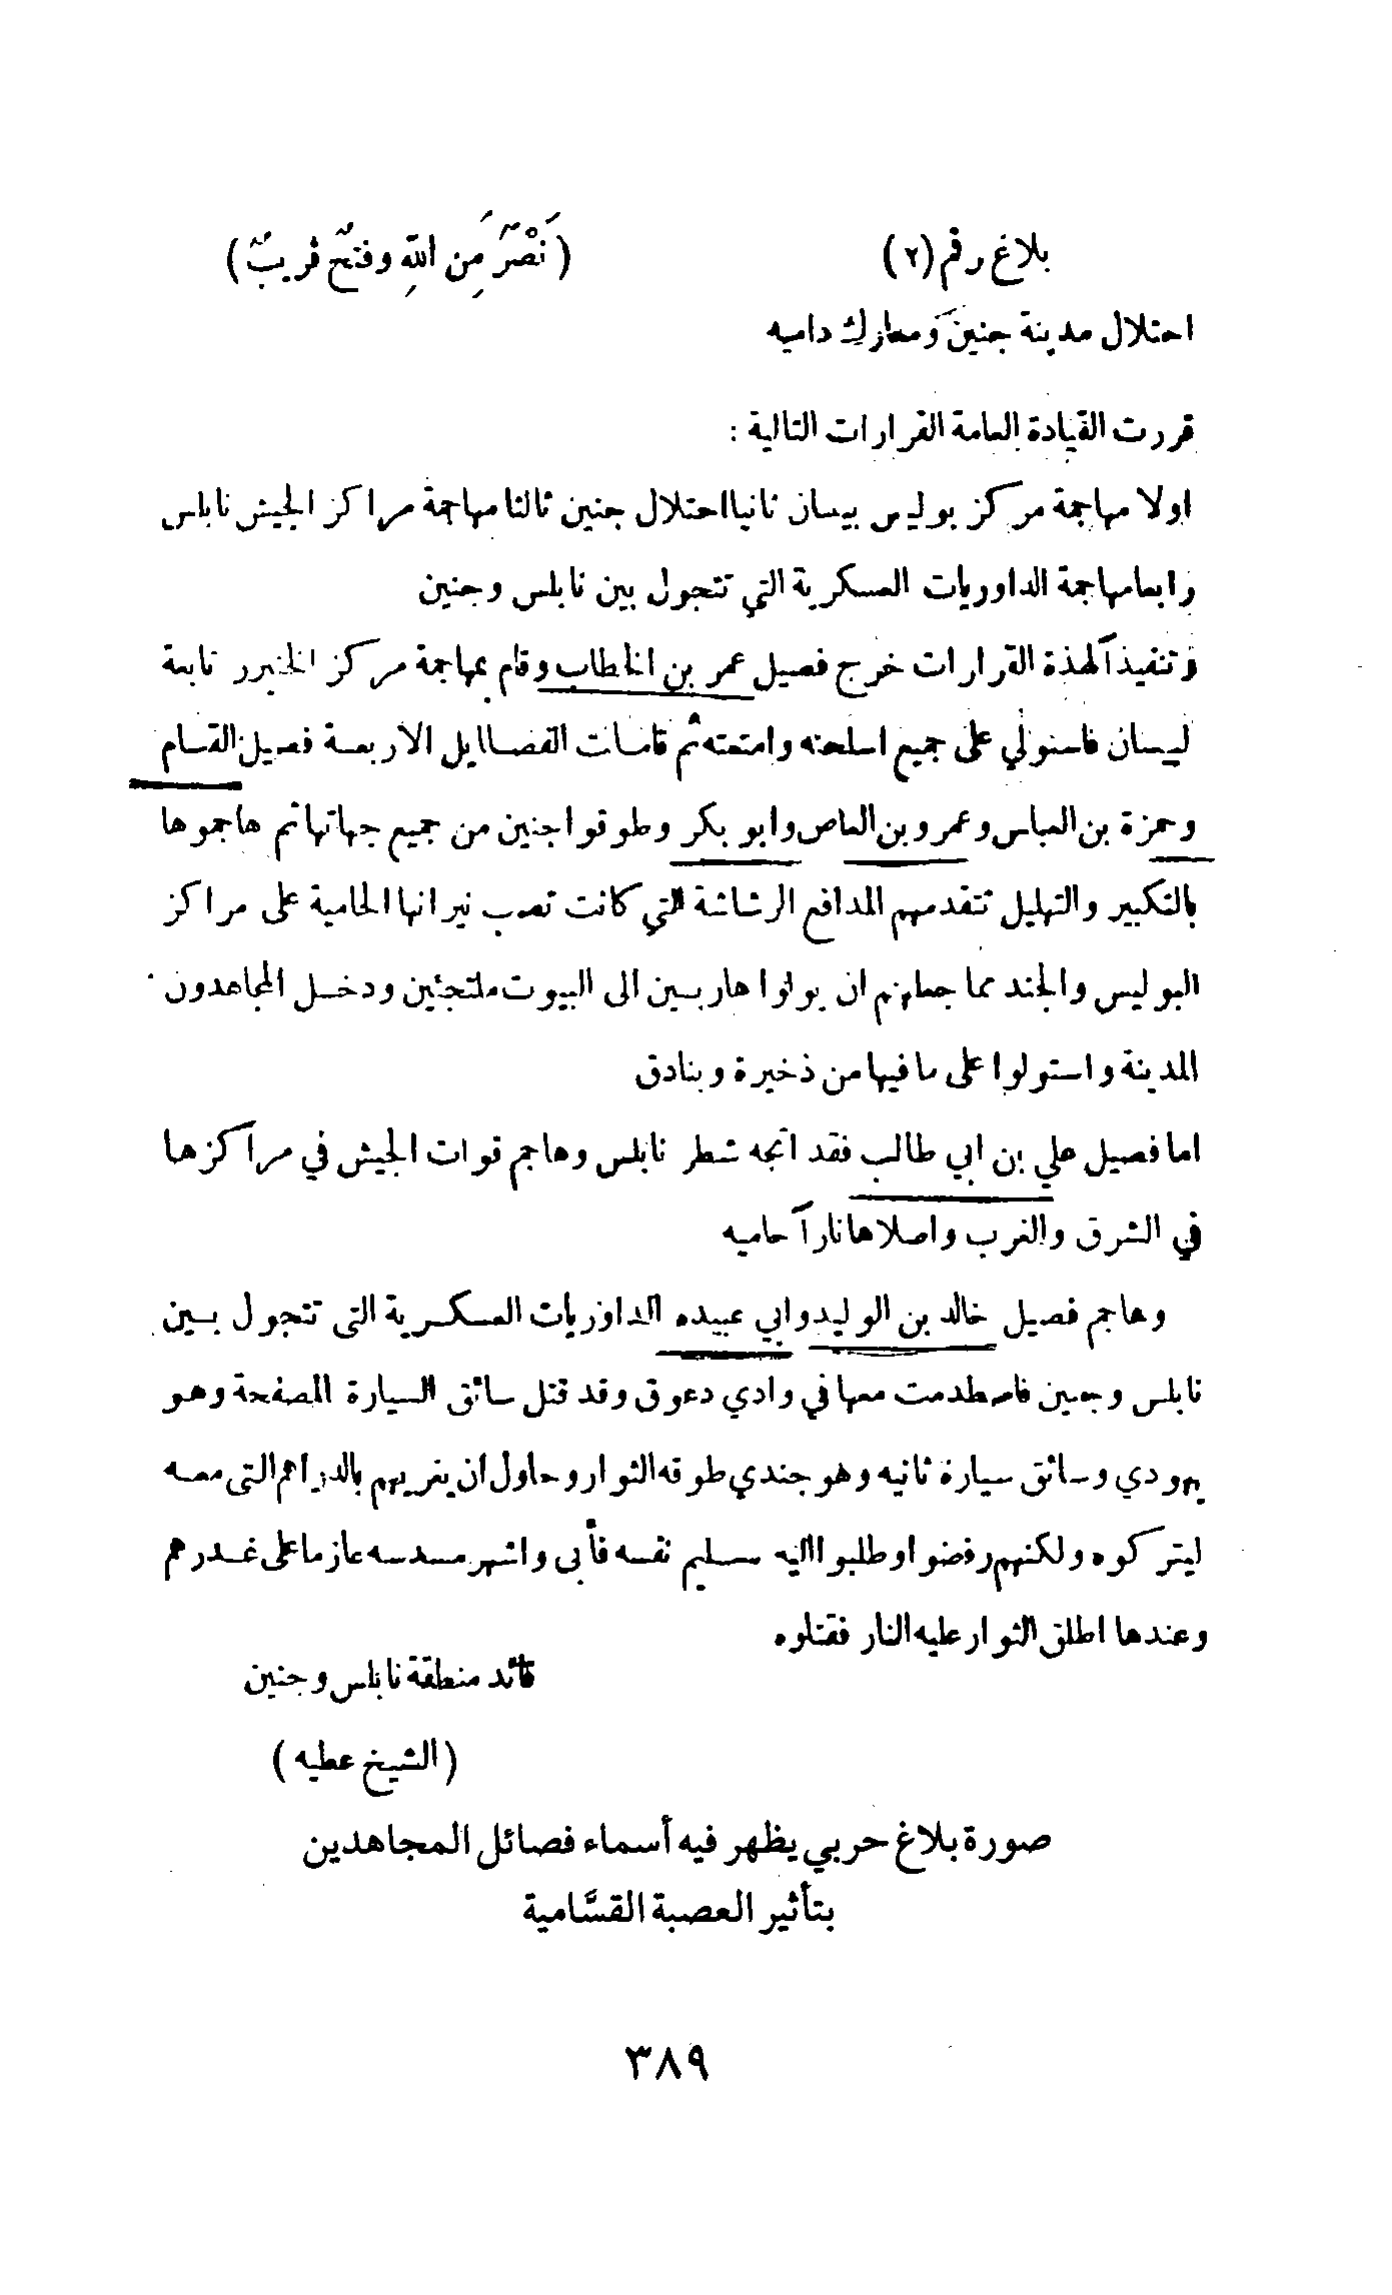 بلاغ رقم (٢) (نَصْرٌ مِن اللهِ وفتحٌ قريبٌ)
احتلال مدينة جنين ومعارك داميه
قررت القيادة العامة القرارات التالية :
اولا مهاجمة مركز بوليس بيسان ثانيا احتلال جنين ثالثا مهاجمة مراكز الجيش نابلس
رابعا مهاجمة الداوريات العسكرية التي تتجول بين نابلس وجنين
وتنفيذاً لهذة القرارات خرج فصيل عمر بن الخطاب وقام بمهاجمة مركز تابعة
لبيسان فاستولي على جميع اسلحته وامتعته ثم قامات الفصاايل الاربعة فصيل القسام
وحمزة بن العباس وعمرو بن العاص وابو بكر وطوقوا جنين من جميع جهاتها ثم هاجموها
بالتكبير والتهليل تتقدمهم المدافع الرشاشة التي كانت تصب نيرانها الحامية على مراكز
البوليس والجند مما جعلهم ان يولوا هاربين الى البيوت ملتجئين ودخل المجاهدون
المدينة واستولوا على ما فيها من ذخيرة وبنادق
اما فصيل علي بن ابي طالب فقد اتجه شطر نابلس وهاجم قوات الجيش في مراكزها
في الشرق والغرب واصلاها ناراً حاميه
وهاجم فصيل خالد بن الوليد وابي عبيده الداوريات العسكرية التى تتجول بين
نابلس وجنين فاصطدمت معها في وادي دعوق وقد قتل سائق السيارة المصفحة وهو
يهودي وسائق سيارة ثانيه وهو جندي طوقه الثوار وحاول ان يغريهم بالدراهم التى معه
ليتركوه ولكنهم رفضوا وطلبوا اليه تسليم نفسه فأبى واشهر مسدسه عازما على غدرهم
وعندها اطلق الثوار عليه النار فقتلوه
قائد منطقة نابلس وجنين
(الشيخ عطيه)
صورة بلاغ حربي يظهر فيه أسماء فصائل المجاهدين
بتأثير العصبة القسَّامية
٣٨٩